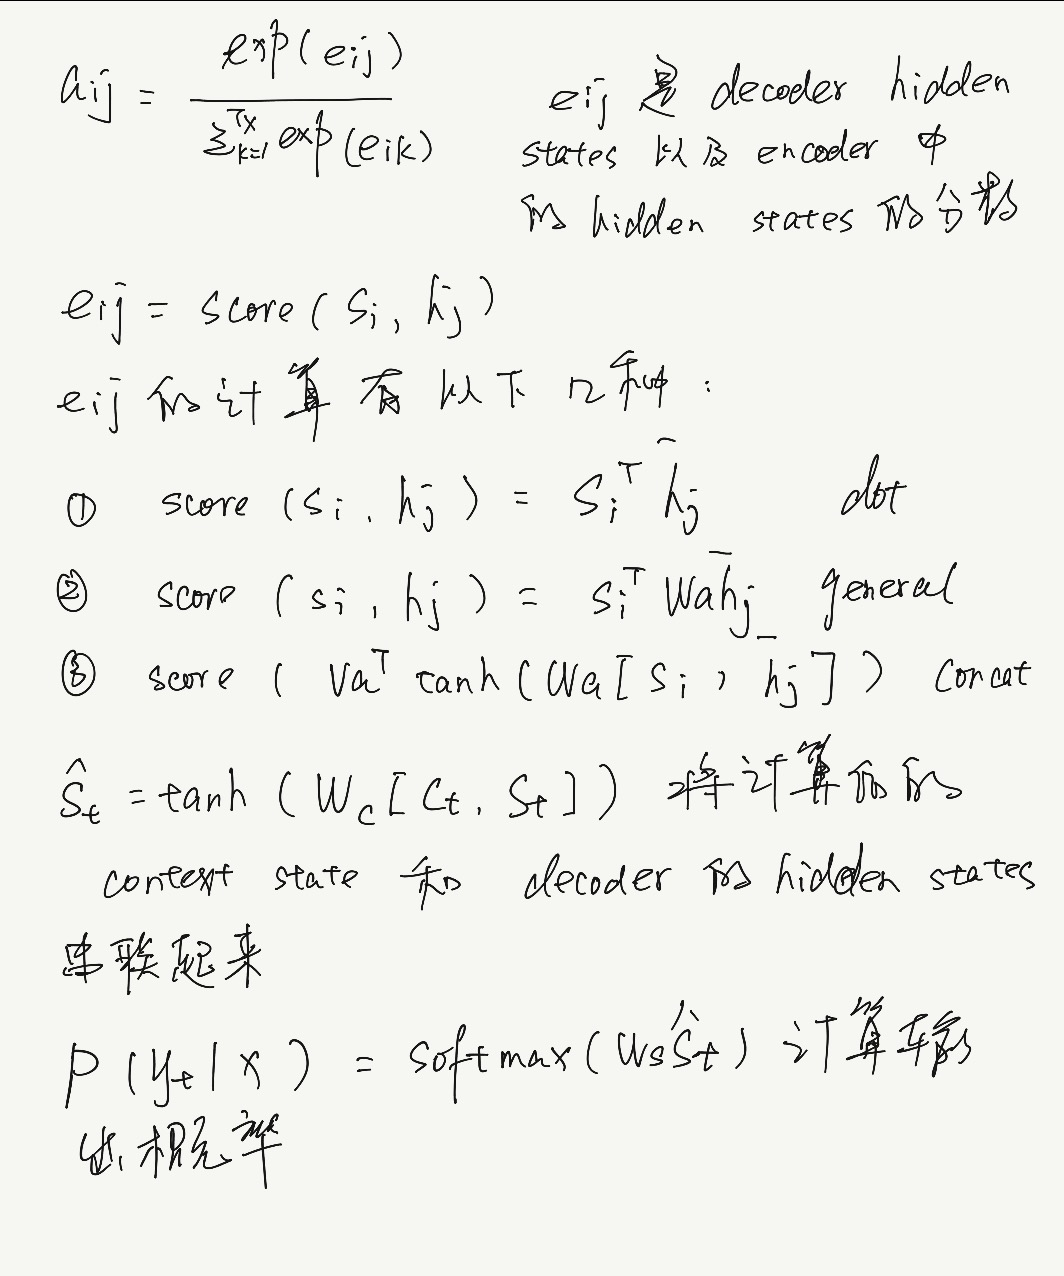 aij = exp(eij) / Σ_{k=1}^{Tx} exp(eik)
eij 是 decoder hidden
states 以及 encoder 中
的 hidden states 的分数
eij = score(Si, h̄j)
eij 的计算有以下几种:
① score(si, h̄j) = Si^T h̄j dot
② score(si, hj) = Si^T Wa h̄j general
③ score(Va^T tanh(Wa[Si, h̄j]) concat
Ŝt = tanh(Wc[Ct, St]) 将计算而的
context state 和 decoder 的 hidden states
串联起来
P(yt|x) = softmax(WsŜt) 计算输
出概率